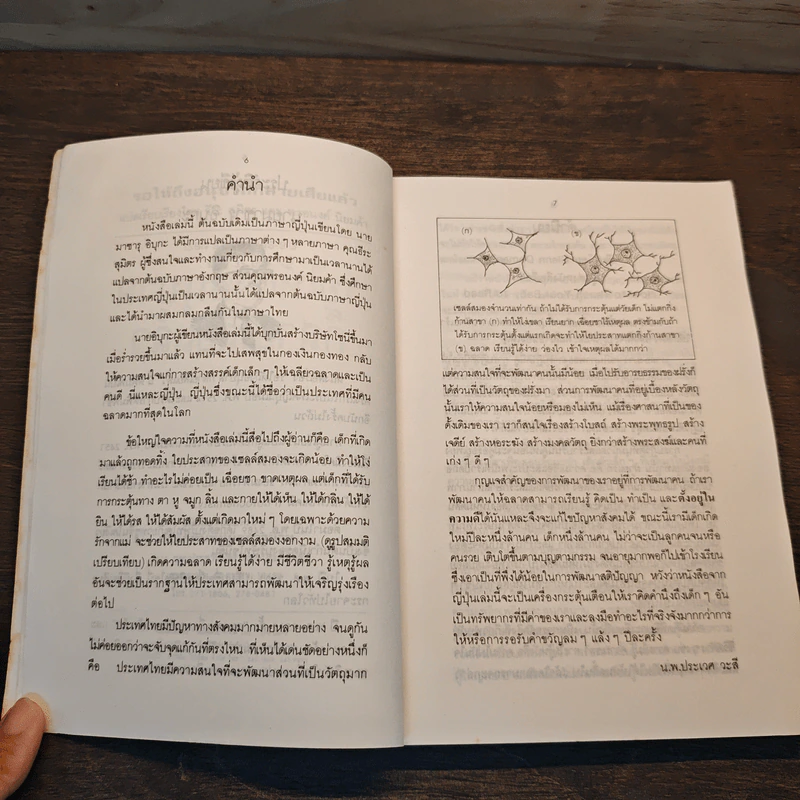 ๖
คำนำ
หนังสือเล่มนี้ ต้นฉบับเดิมเป็นภาษาญี่ปุ่นเขียนโดย นาย
มาซารุ อิบุกะ ได้มีการแปลเป็นภาษาต่าง ๆ หลายภาษา คุณธีระ
สุมิตร ผู้ซึ่งสนใจและทำงานเกี่ยวกับการศึกษามาเป็นเวลานานได้
แปลจากต้นฉบับภาษาอังกฤษ ส่วนคุณพรอนงค์ นิยมค้า ซึ่งศึกษา
ในประเทศญี่ปุ่นเป็นเวลานานนั้นได้แปลจากต้นฉบับภาษาญี่ปุ่น
และได้นำมาผสมกลมกลืนกันในภาษาไทย
นายอิบุกะผู้เขียนหนังสือเล่มนี้ได้บุกบั่นสร้างบริษัทโซนี่ขึ้นมา
เมื่อร่ำรวยขึ้นมาแล้ว แทนที่จะไปเสพสุขในกองเงินกองทอง กลับ
ให้ความสนใจแก่การสร้างสรรค์เด็กเล็ก ๆ ให้เฉลียวฉลาดและเป็น
คนดี นี่แหละญี่ปุ่น ญี่ปุ่นซึ่งขณะนี้ได้ชื่อว่าเป็นประเทศที่มีคน
ฉลาดมากที่สุดในโลก
ข้อใหญ่ใจความที่หนังสือเล่มนี้สื่อไปถึงผู้อ่านก็คือ เด็กที่เกิด
มาแล้วถูกทอดทิ้ง ใยประสาทของเซลล์สมองจะเกิดน้อย ทำให้โง่
เรียนได้ช้า ทำอะไรไม่ค่อยเป็น เฉื่อยชา ขาดเหตุผล แต่เด็กที่ได้รับ
การกระตุ้นทาง ตา หู จมูก ลิ้น และกายให้ได้เห็น ให้ได้กลิ่น ให้ได้
ยิน ให้ได้รส ให้ได้สัมผัส ตั้งแต่เกิดมาใหม่ ๆ โดยเฉพาะด้วยความ
รักจากแม่ จะช่วยให้ใยประสาทของเซลล์สมองงอกงาม (ดูรูปสมมติ
เปรียบเทียบ) เกิดความฉลาด เรียนรู้ได้ง่าย มีชีวิตชีวา รู้เหตุรู้ผล
อันจะช่วยเป็นรากฐานให้ประเทศสามารถพัฒนาให้เจริญรุ่งเรือง
ต่อไป
ประเทศไทยมีปัญหาทางสังคมมากมายหลายอย่าง จนดูกัน
ไม่ค่อยออกว่าจะจับจุดแก้กันที่ตรงไหน ที่เห็นได้เด่นชัดอย่างหนึ่งก็
คือ ประเทศไทยมีความสนใจที่จะพัฒนาส่วนที่เป็นวัตถุมาก
๗
(ก)
(ข)
เซลล์สมองจำนวนเท่ากัน ถ้าไม่ได้รับการกระตุ้นแต่วัยเด็ก ไม่แตกกิ่ง
ก้านสาขา (ก) ทำให้โง่เขลา เรียนยาก เฉื่อยชาไร้เหตุผล ตรงข้ามกับถ้า
ได้รับการกระตุ้นตั้งแต่แรกเกิดจะทำให้ใยประสาทแตกกิ่งก้านสาขา
(ข) ฉลาด เรียนรู้ได้ง่าย ว่องไว เข้าใจเหตุผลได้มากกว่า
แต่ความสนใจที่จะพัฒนาคนนั้นมีน้อย เมื่อไปรับอารยธรรมของฝรั่งก็
ได้ส่วนที่เป็นวัตถุของฝรั่งมา ส่วนการพัฒนาคนที่อยู่เบื้องหลังวัตถุ
นั้นเราให้ความสนใจน้อยหรือมองไม่เห็น แม้เรื่องศาสนาที่เป็นของ
ดั้งเดิมของเรา เราก็สนใจเรื่องสร้างโบสถ์ สร้างพระพุทธรูป สร้าง
เจดีย์ สร้างหอระฆัง สร้างมงคลวัตถุ ยิ่งกว่าสร้างพระสงฆ์และคนที่
เก่ง ๆ ดี ๆ
กุญแจสำคัญของการพัฒนาของเราอยู่ที่การพัฒนาคน ถ้าเรา
พัฒนาคนให้ฉลาดสามารถเรียนรู้ คิดเป็น ทำเป็น และตั้งอยู่ใน
ความดีได้นั่นแหละจึงจะแก้ไขปัญหาสังคมได้ ขณะนี้เรามีเด็กเกิด
ใหม่ปีละหนึ่งล้านคน เด็กหนึ่งล้านคน ไม่ว่าจะเป็นลูกคนจนหรือ
คนรวย เติบโตขึ้นตามบุญตามกรรม จนอายุมากพอก็ไปเข้าโรงเรียน
ซึ่งเอาเป็นที่พึ่งได้น้อยในการพัฒนาสติปัญญา หวังว่าหนังสือจาก
ญี่ปุ่นเล่มนี้จะเป็นเครื่องกระตุ้นเตือนให้เราคิดคำนึงถึงเด็ก ๆ อัน
เป็นทรัพยากรที่มีค่าของเราและลงมือทำอะไรที่จริงจังมากกว่าการ
ให้หรือการรอรับคำขวัญลม ๆ แล้ง ๆ ปีละครั้ง
น.พ.ประเวศ วะสี